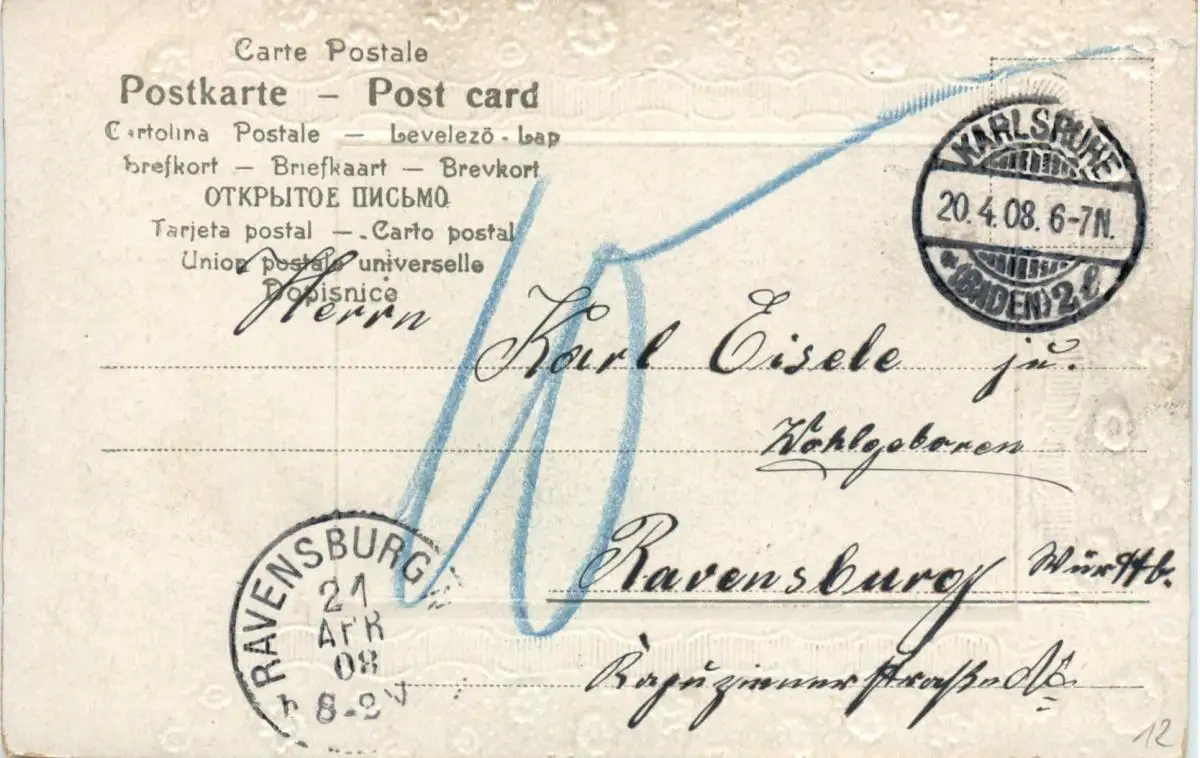 Carte Postale
Postkarte – Post card
Cartolina Postale – Levelező-Lap
Brefkort – Briefkaart – Brevkort
ОТКРЫТОЕ ПИСЬМО
Tarjeta postal – Carto postal
Union postale universelle
Dopisnice
KARLSRUHE
20.4.08. 6-7N.
*(BADEN) 2 l
10
Herrn
Karl Eisele ju.
Wohlgeboren
Ravensburg Württb.
Kapuzinerstraße
RAVENSBURG
21
APR
08
8-9 V
12